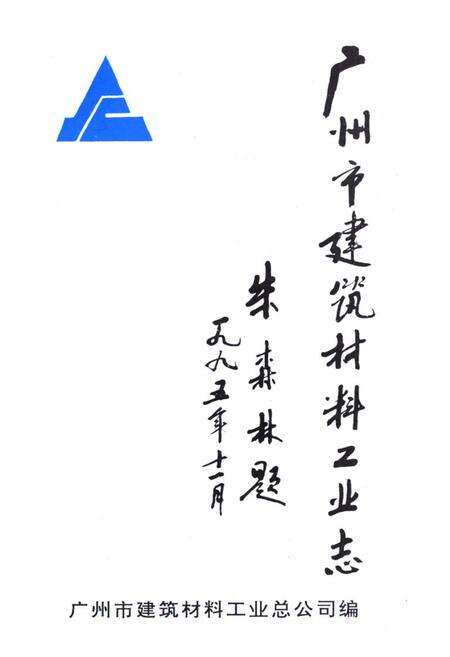 广州市建筑材料工业志
朱森林题
一九九五年十一月
广州市建筑材料工业总公司编